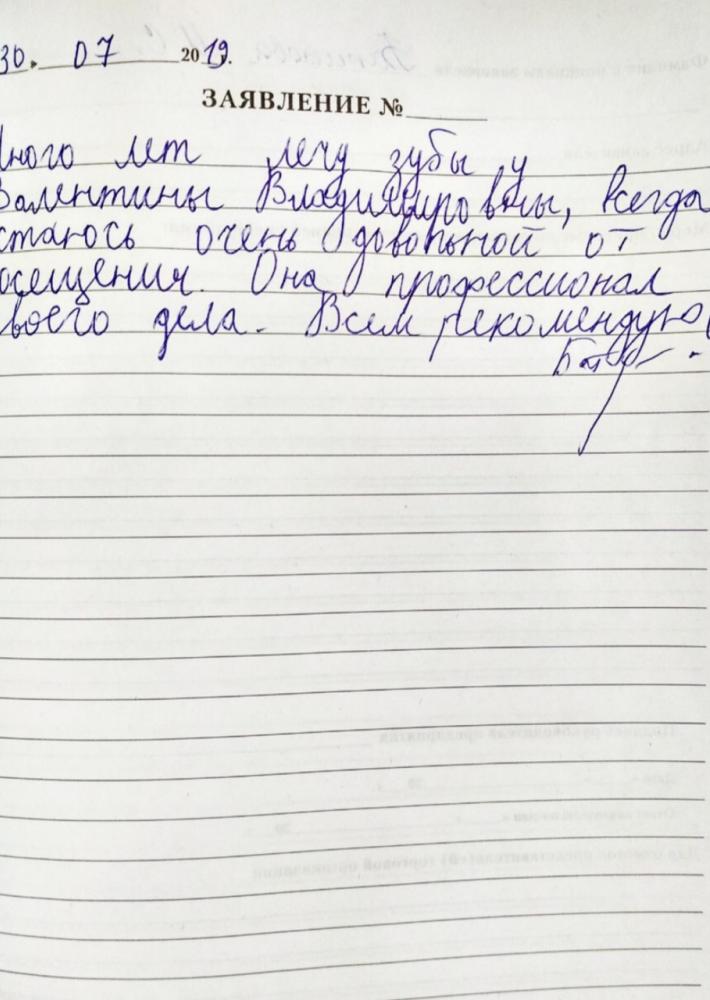 30. 07 2019.
ЗАЯВЛЕНИЕ №
много лет лечу зубы у
Валентины Владимировны, всегда
стаюсь очень довольной от
осещения. Она профессионал
воего дела. Всем рекомендую